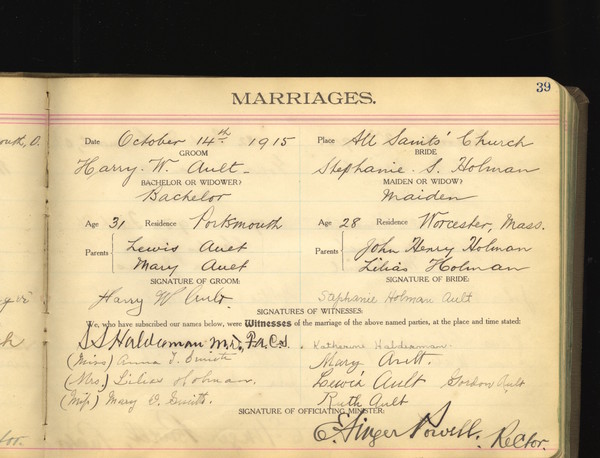 39
MARRIAGES.
Date October 14th 1915 Place All Saints' Church
GROOM BRIDE
Harry. W. Ault Stephanie. S. Holman
BACHELOR OR WIDOWER? MAIDEN OR WIDOW?
Bachelor Maiden
Age 31 Residence Portsmouth Age 28 Residence Worcester, Mass.
Parents Lewis Ault Parents John Henry Holman
Mary Ault Lilias Holman
SIGNATURE OF GROOM: SIGNATURE OF BRIDE:
Harry W Ault. Stephanie Holman Ault
SIGNATURES OF WITNESSES:
We, who have subscribed our names below, were Witnesses of the marriage of the above named parties, at the place and time stated:
S S Haldeman M.D., F.A.C.S. Katherine Haldeman.
(Miss) Anna T. Smith Mary Ault.
(Mrs.) Lilias Holman. Lewis Ault Gordon Ault
(Miss) Mary Smith. Ruth Ault
SIGNATURE OF OFFICIATING MINISTER:
E. Ainger Powell. Rector.